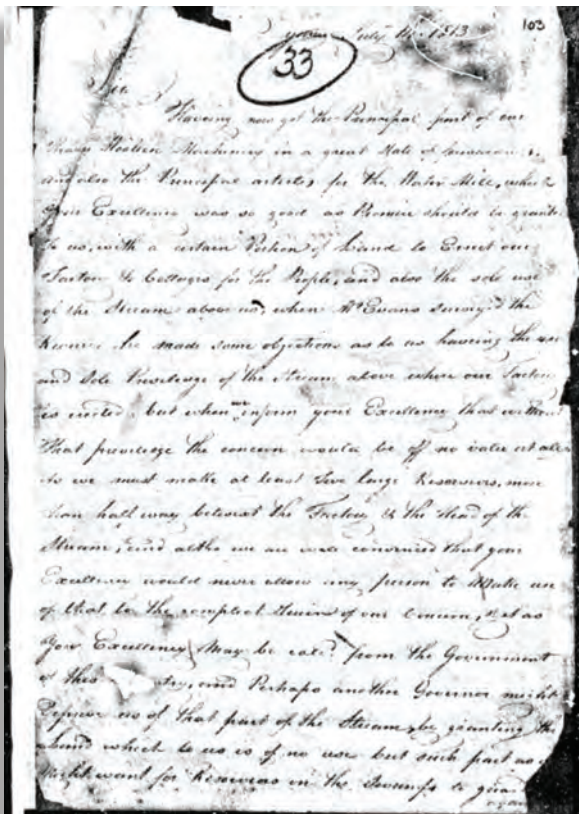 103
July 14 1813
33
Sir
Haveing now got the Principal part of our
Machinery in a great State of
and also the Principal articles for the Water Mill, which
your Excellency was so good as Promise should be grant
to us, with a certain Portion of Land to Erect our
Factory & Cottages for the People, and also the sole use
of the Stream above us, when Mr Evans survey'd the
he made some objections as to us haveing the use
and Sole Priviledge of the Stream above where our Factory
is erected, but when we inform your Excellency that without
that priviledge the concern would be off no value at all
As we must make at least Two large Reservoirs, more
than half way betwixt the Factory & the Head of the
Stream, and altho we are well convinced that your
Excellency would never allow any person to Make use
of that, to the compleat Ruin of our Concern, Yet as
Your Excellency May be call'd from the Government
of this and Perhaps another Governor might
Deprive us of that part of the Stream, by granting the
Land which to us is of no use but such part as
Might want for Reservoirs in the to